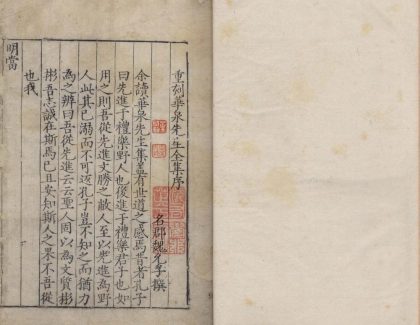 重刻華泉先生全集序
名郡魏允孚撰
余讀華泉先生集蓋有世道之感焉昔者孔子
曰先進于禮樂野人也後進于禮樂君子也如
用之則吾從先進文勝之敝人至以先進為野
人此其已溺而不可返孔子豈不知之而猶力
為之辨曰吾從先進云云聖人固以為文質彬
彬吾志誠在斯焉已且安知斯人之果不吾從
也我
明當